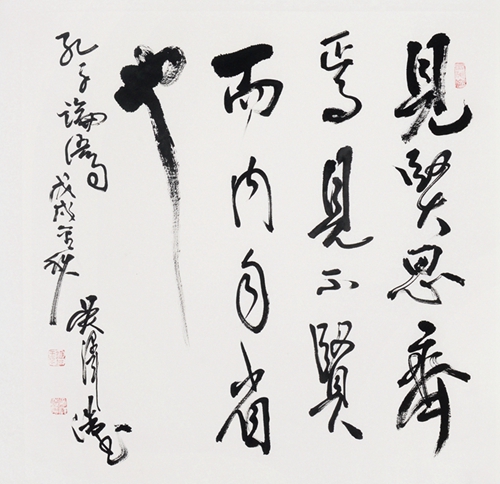 見賢思齊
焉見不賢
而内自省
也
孔子論語句戊戌金秋
吳